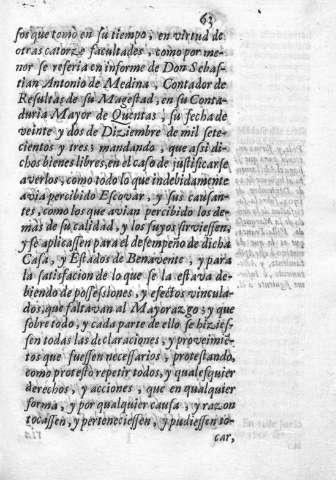 63
sos que tomò en su tiempo, en virtud de
otras catorze facultades, como por me-
nor se referia en informe de Don Sebas-
tian Antonio de Medina, Contador de
Resultas de su Magestad, en su Conta-
duria Mayor de Quentas, su fecha de
veinte y dos de Diziembre de mil sete-
cientos y tres; mandando, que assi di-
chos bienes libres, en el caso de justificarse
averlos, como todo lo que indebidamente
avia percibido Escovar, y sus causan-
tes, como los que avian percibido los de-
màs de su calidad, y los suyos sirviessen,
y se aplicassen para el desempeño de dicha
Casa, y Estados de Benavente, y para
la satisfacion de lo que se la estava de-
biendo de possessiones, y efectos vincula-
dos, que faltavan al Mayorazgo; y que
sobre todo, y cada parte de ello se hizies-
sen todas las declaraciones, y proveimiē-
tos que fuessen necessarios, protestando,
como protestò repetir todos, y qualesquier
derechos, y acciones, que en qualquier
forma, y por qualquier causa, y razon
tocassen, y perteneciessen, y pudiessen to-
car,